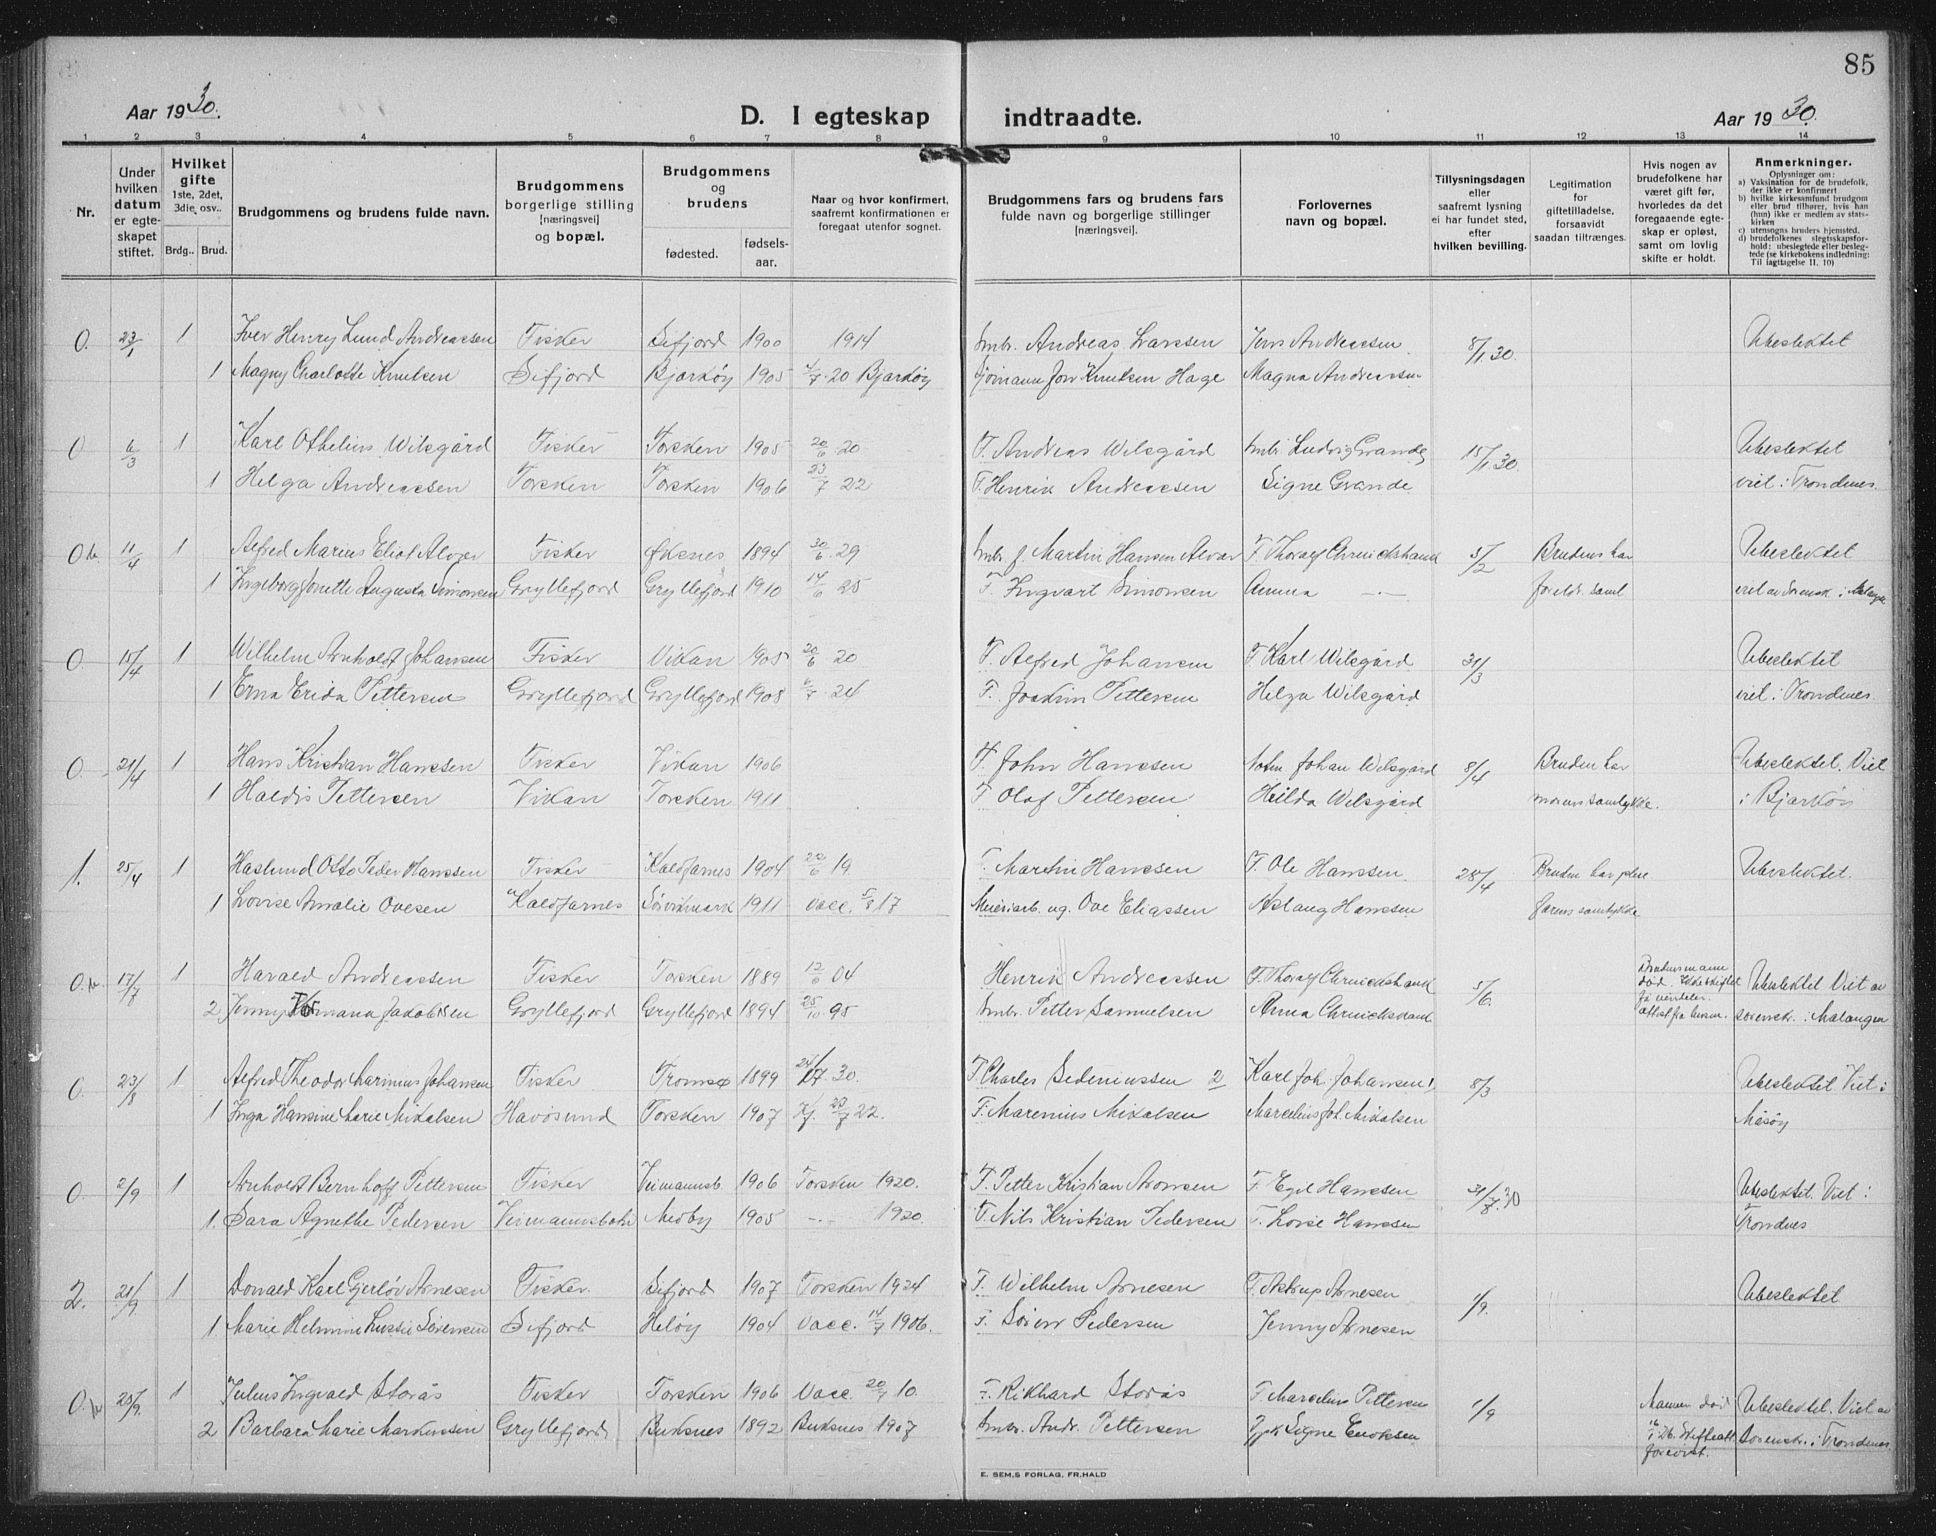 85
Aar 1930.
D. I egteskap indtraadte.
Aar 1930.
1 2 3 4 5 6 7 8 9 10 11 12 13 14
Nr.
Under hvilken datum er egteskapet stiftet.
Hvilket gifte 1ste, 2det, 3die, osv..
Brdg.. Brud.
Brudgommens og brudens fulde navn.
Brudgommens borgerlige stilling [næringsvei] og bopæl.
Brudgommens og brudens
fødested.
fødselsaar.
Naar og hvor konfirmert, saafremt konfirmationen er foregaat utenfor sognet.
Brudgommens fars og brudens fars fulde navn og borgerlige stillinger [næringsvei].
Forlovernes navn og bopæl.
Tillysningsdagen eller saafremt lysning ei har fundet sted, efter hvilken bevilling.
Legitimation for giftetilladelse, forsaavidt saadan tiltrænges.
Hvis nogen av brudefolkene har været gift før, hvorledes da det foregaaende egteskap er opløst, samt om lovlig skifte er holdt.
Anmerkninger.
Oplysninger om:
a) Vaksination for de brudefolk, der ikke er konfirmert
b) hvilke kirkesamfund brudgom eller brud tilhører, hvis han (hun) ikke er medlem av statskirken
c) utensogns bruders hjemsted,
d) brudefolkenes slegtsskapsforhold: ubeslegtede eller beslegtede (se kirkebokens indledning: Til iagttagelse II. 10)
0. 23/1 1 Iver Henry Lund Andreassen Fisker Sifjord 1900 1914 Smbr. Andreas Larssen Jens Andreassen 8/1 30. Ubeslektet
1 Magny Charlotte Knutsen Sifjord Bjarkøy 1905 4/7 20 Bjarkøy Knutsen Hage Magna Andreassen
0 6/3 1 Karl Othelius Wilsgård Fisker Torsken 1905 20/6 20 F. Andreas Wilsgård Smbr Ludvig Grande 15/1 30. Ubeslektet
1 Helga Andreassen Torsken Torsken 1906 23/7 22 F. Henrik Andreassen Signe Grande viet i Trondenes.
0 11/4 1 Alfred Marius Eliot Alvær Fisker Øksnes 1894 30/6 29 Martin Hansen Alvær F. Thoralf 5/2 Brudens har Ubeslektet
1 Ingeborg Jonette Augusta Simonsen Gryllefjord Gryllefjord 1910 14/6 25 F. Ingvart Simonsen Anna foreldr. saml viet av Sorensk. i
0 15/4 1 Wilhelm Arnholdt Johansen Fisker Vikan 1905 20/6 20 F. Alfred Johansen F Karl Wilsgård 31/3 Ubeslektet
1 Erna Erida Pettersen Gryllefjord Gryllefjord 1908 24 F. Joakim Pettersen Helga Wilsgård viet i Trondenes.
0. 21/4 1 Hans Kristian Hanssen Fisker Vikan 1906 F John Hanssen Johan Wilsgård 8/4 Bruden har Ubeslektet. Viet
1 Haldis Pettersen Vikan Torsken 1911 F Olaf Pettersen Hilda Wilsgård morens samtykke. i Bjarkøy
1. 25/4 1 Haslund Otto Peder Hanssen Fisker Kaldfarnes 1904 22/6 19. F. Martin Hanssen F. Ole Hanssen. 28/4 Bruden har Ubeslektet.
1 Lovise Amalie Ovesen Kaldfarnes 1911 Vacc. 5/8 17 Ove Eliassen Aslaug Hanssen farens samtykke
0. 17/7 1 Harald Andreassen Fisker Torsken 1889 12/6 04 Henrik Andreassen F. Thoralf 5/6. Brudens mann død. Ubeslektet Viet av
2 Jenny Jakobsen Gryllefjord Gryllefjord 1894 25/10 95 Smbr. Petter Samuelsen Anna sorenskr. i Malangen
0. 23/8 1 Alfred Theodor Marinius Johansen Fisker Tromsø 1899 30. F Charles Sedeniussen 2 Karl Joh. Johansen 1) 8/3 Ubeslektet. Viet i
1 Inga Hansine Marie Mikalsen Havøsund Torsken 1907 Kf. 23/7 22. F. Marenius Mikalsen Marcelius Joh. Mikalsen Måsøy
0. 2/9 1 Arnholdt Bernhoff Pettersen Fisker Veimannsb. 1906 Torsken 1920. F. Petter Kristian Aronsen F. Egil Hanssen 31/7.30 Ubeslektet. Viet i
1. Sara Agnethe Pedersen Veimannsbotn Medby 1905 1920. F. Nils Kristian Pedersen F. Lovise Hanssen Trondenes
2. 21/9 1 Donald Karl Gjerløv Arnesen Fisker. Sifjord 1907 Torsken 1924 F. Wilhelm Arnesen F. Astrup Arnesen 1/9. Ubeslektet
1 Marie Helmine Lussie Sørensen Sifjord Heløy 1904 Vacc. 14/7 1906. F. Søren Pedersen Jenny Arnesen
0. 20/9. 1 Julius Ingvald Storås Fisker Torsken 1906 Vacc. 10. F. Rikhard Storås F. Marcelius Pettersen 1/9 Mannen død Ubeslektet. Viet av
2 Barbara Marie Markussen Gryllefjord Buksnes 1892 Buksnes 1907 Smbr. Andr. Pettersen Signe Enoksen 26. Skifteatt forevist. Sorenskr. i Trondenes
E. SEM,S FORLAG, FR.HALD